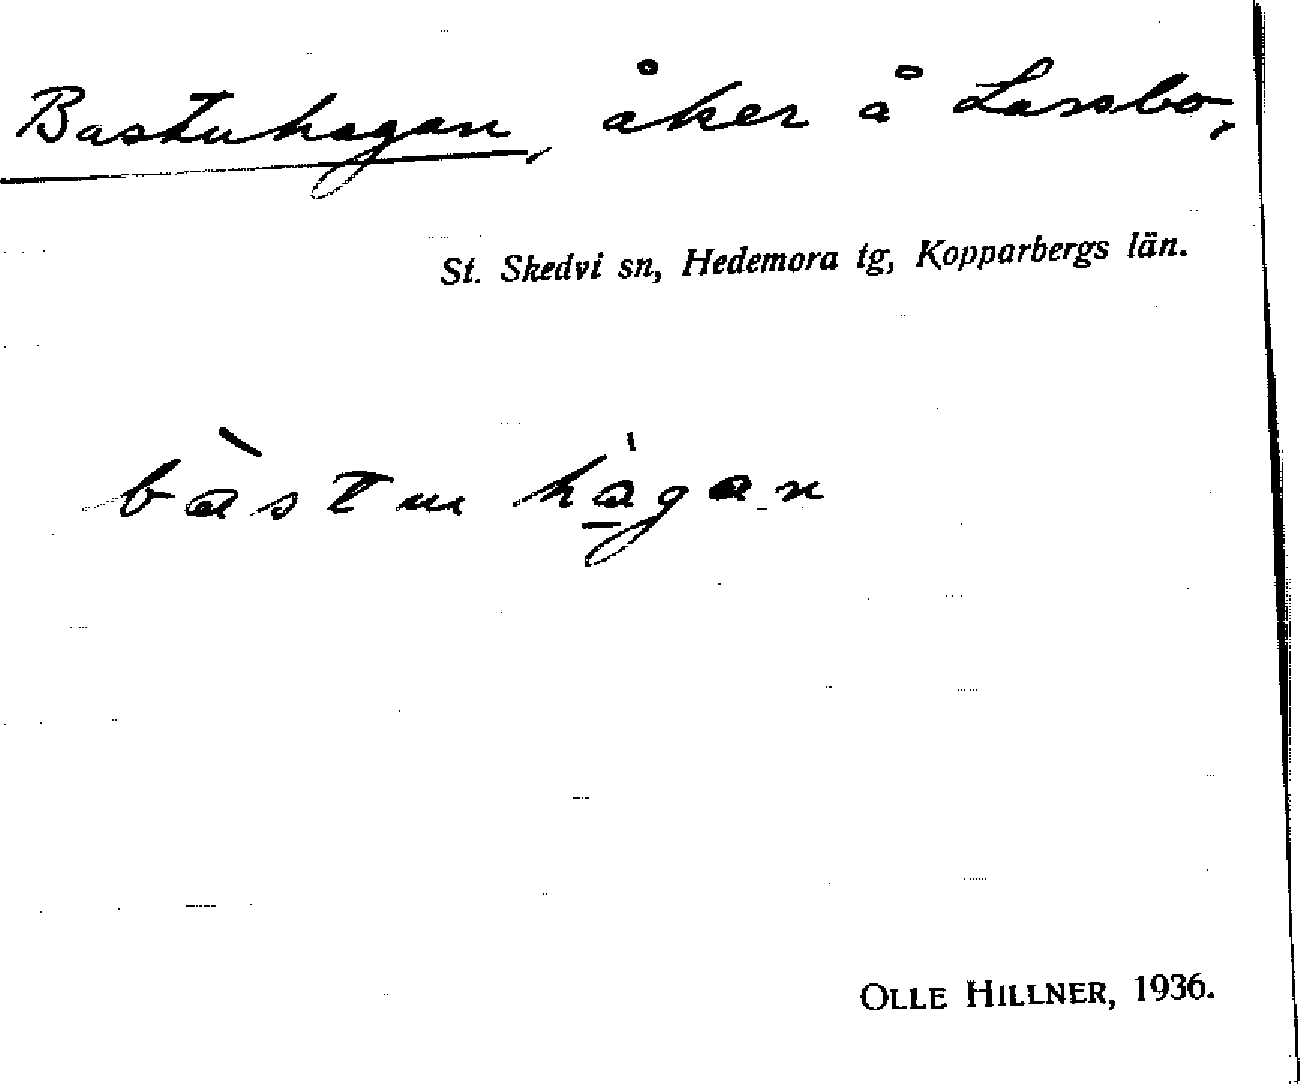 Bastuhagan, åker å Lassbo,
St. Skedvi sn, Hedemora tg, Kopparbergs län.
bàstu hágan
OLLE HILLNER, 1936.